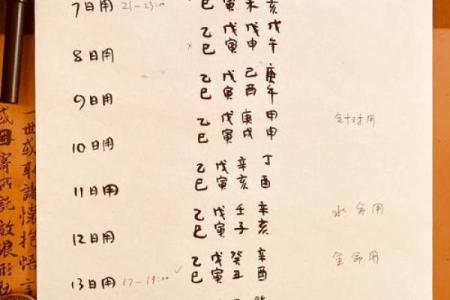 7日用 21-23:00 巳 寅 未 亥
乙 戊 戊 戊
8日用 巳 寅 申 午
乙 戊 己 庚
9日用 巳 寅 酉 午
乙 戊 庚 甲
10日用 巳 寅 戌 申
乙 戊 辛 丁
11日用 巳 寅 亥 酉
乙 戊 壬 辛
12日用 巳 寅 子 亥 水命用
乙 戊 癸 辛
13日用 17-19:00 巳 寅 丑 酉 金命用
世或取諸懷抱悟言
或因寄所託放浪形